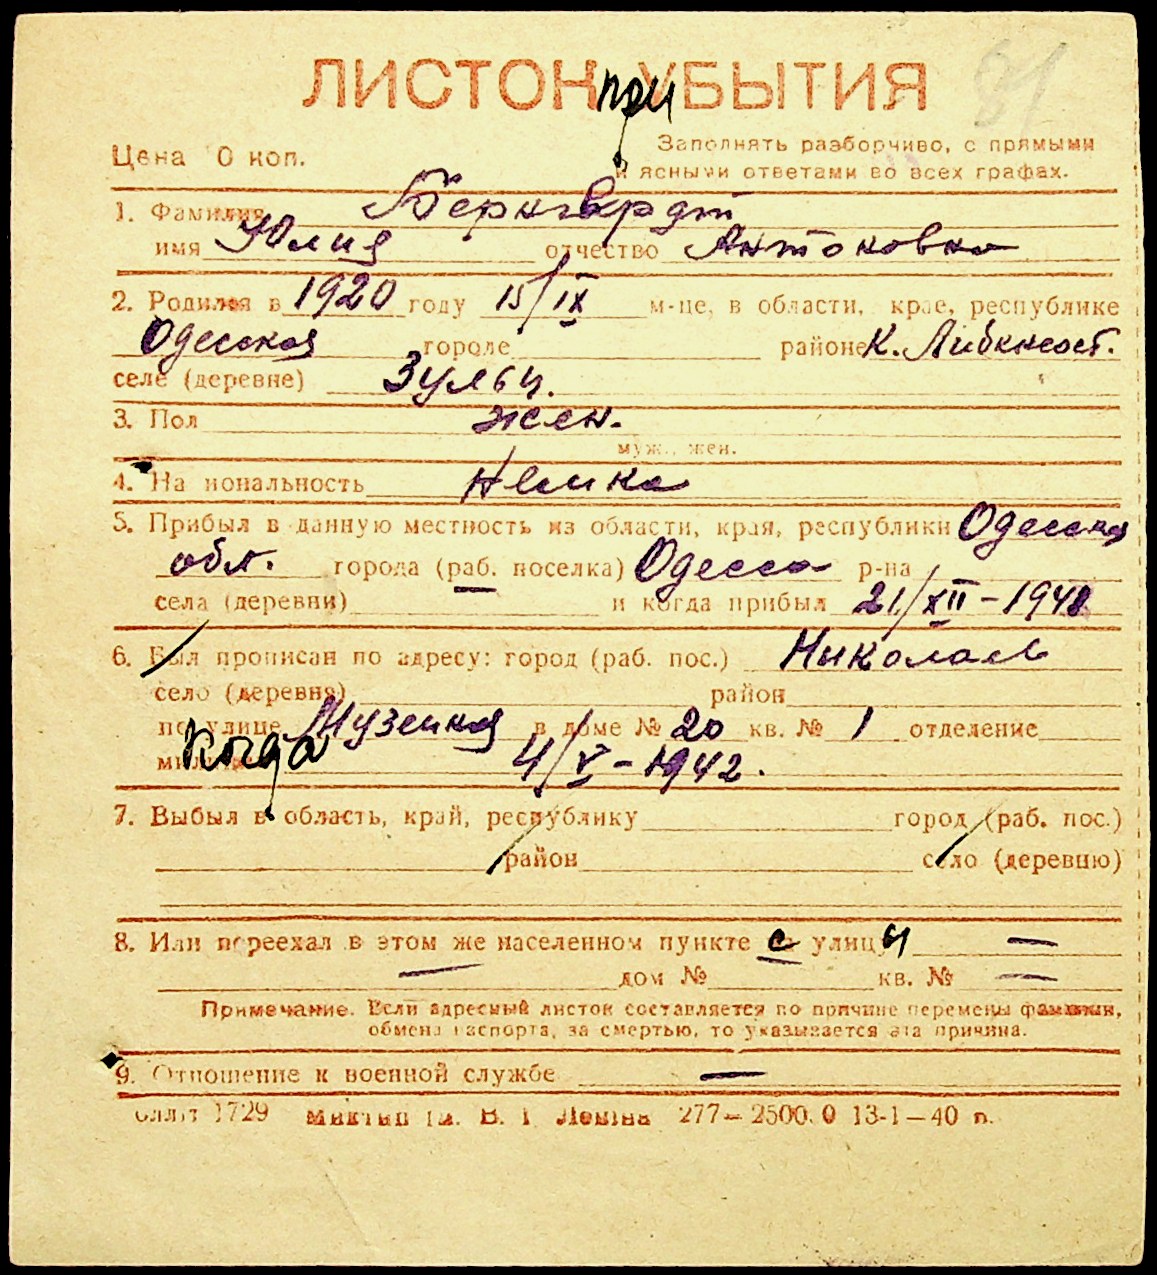 ЛИСТОК при УБЫТИЯ
84
Цена 0 коп. Заполнять разборчиво, с прямыми
и ясными ответами во всех графах.
1. Фамилия Бернгардт
имя Юлия отчество Антоновна
2. Родился в 1920 году 15/IX м-це, в области, крае, республике
Одесская городе районе К. Либкнехт.
селе (деревне) Зульц.
3. Пол жен.
муж., жен.
4. На иональность Немка
5. Прибыл в данную местность из области, края, республики Одесская
обл. города (раб. поселка) Одесса р-на
села (деревни) и когда прибыл 21/XII-1941
6. Был прописан по адресу: город (раб. пос.) Николаев
село (деревня) район
по улице Музейная в доме № 20 кв. № 1 отделение
Когда 4/V-1942.
7. Выбыл в область, край, республику город (раб. пос.)
район село (деревню)
8. Или переехал в этом же населенном пункте с улицы —
— дом № кв. № —
Примечание. Если адресный листок составляется по причине перемены фамилии,
обмена паспорта, за смертью, то указывается эта причина.
9. Отношение к военной службе —
1729 В. І. Леніна 277—2500.0 13-1—40 п.